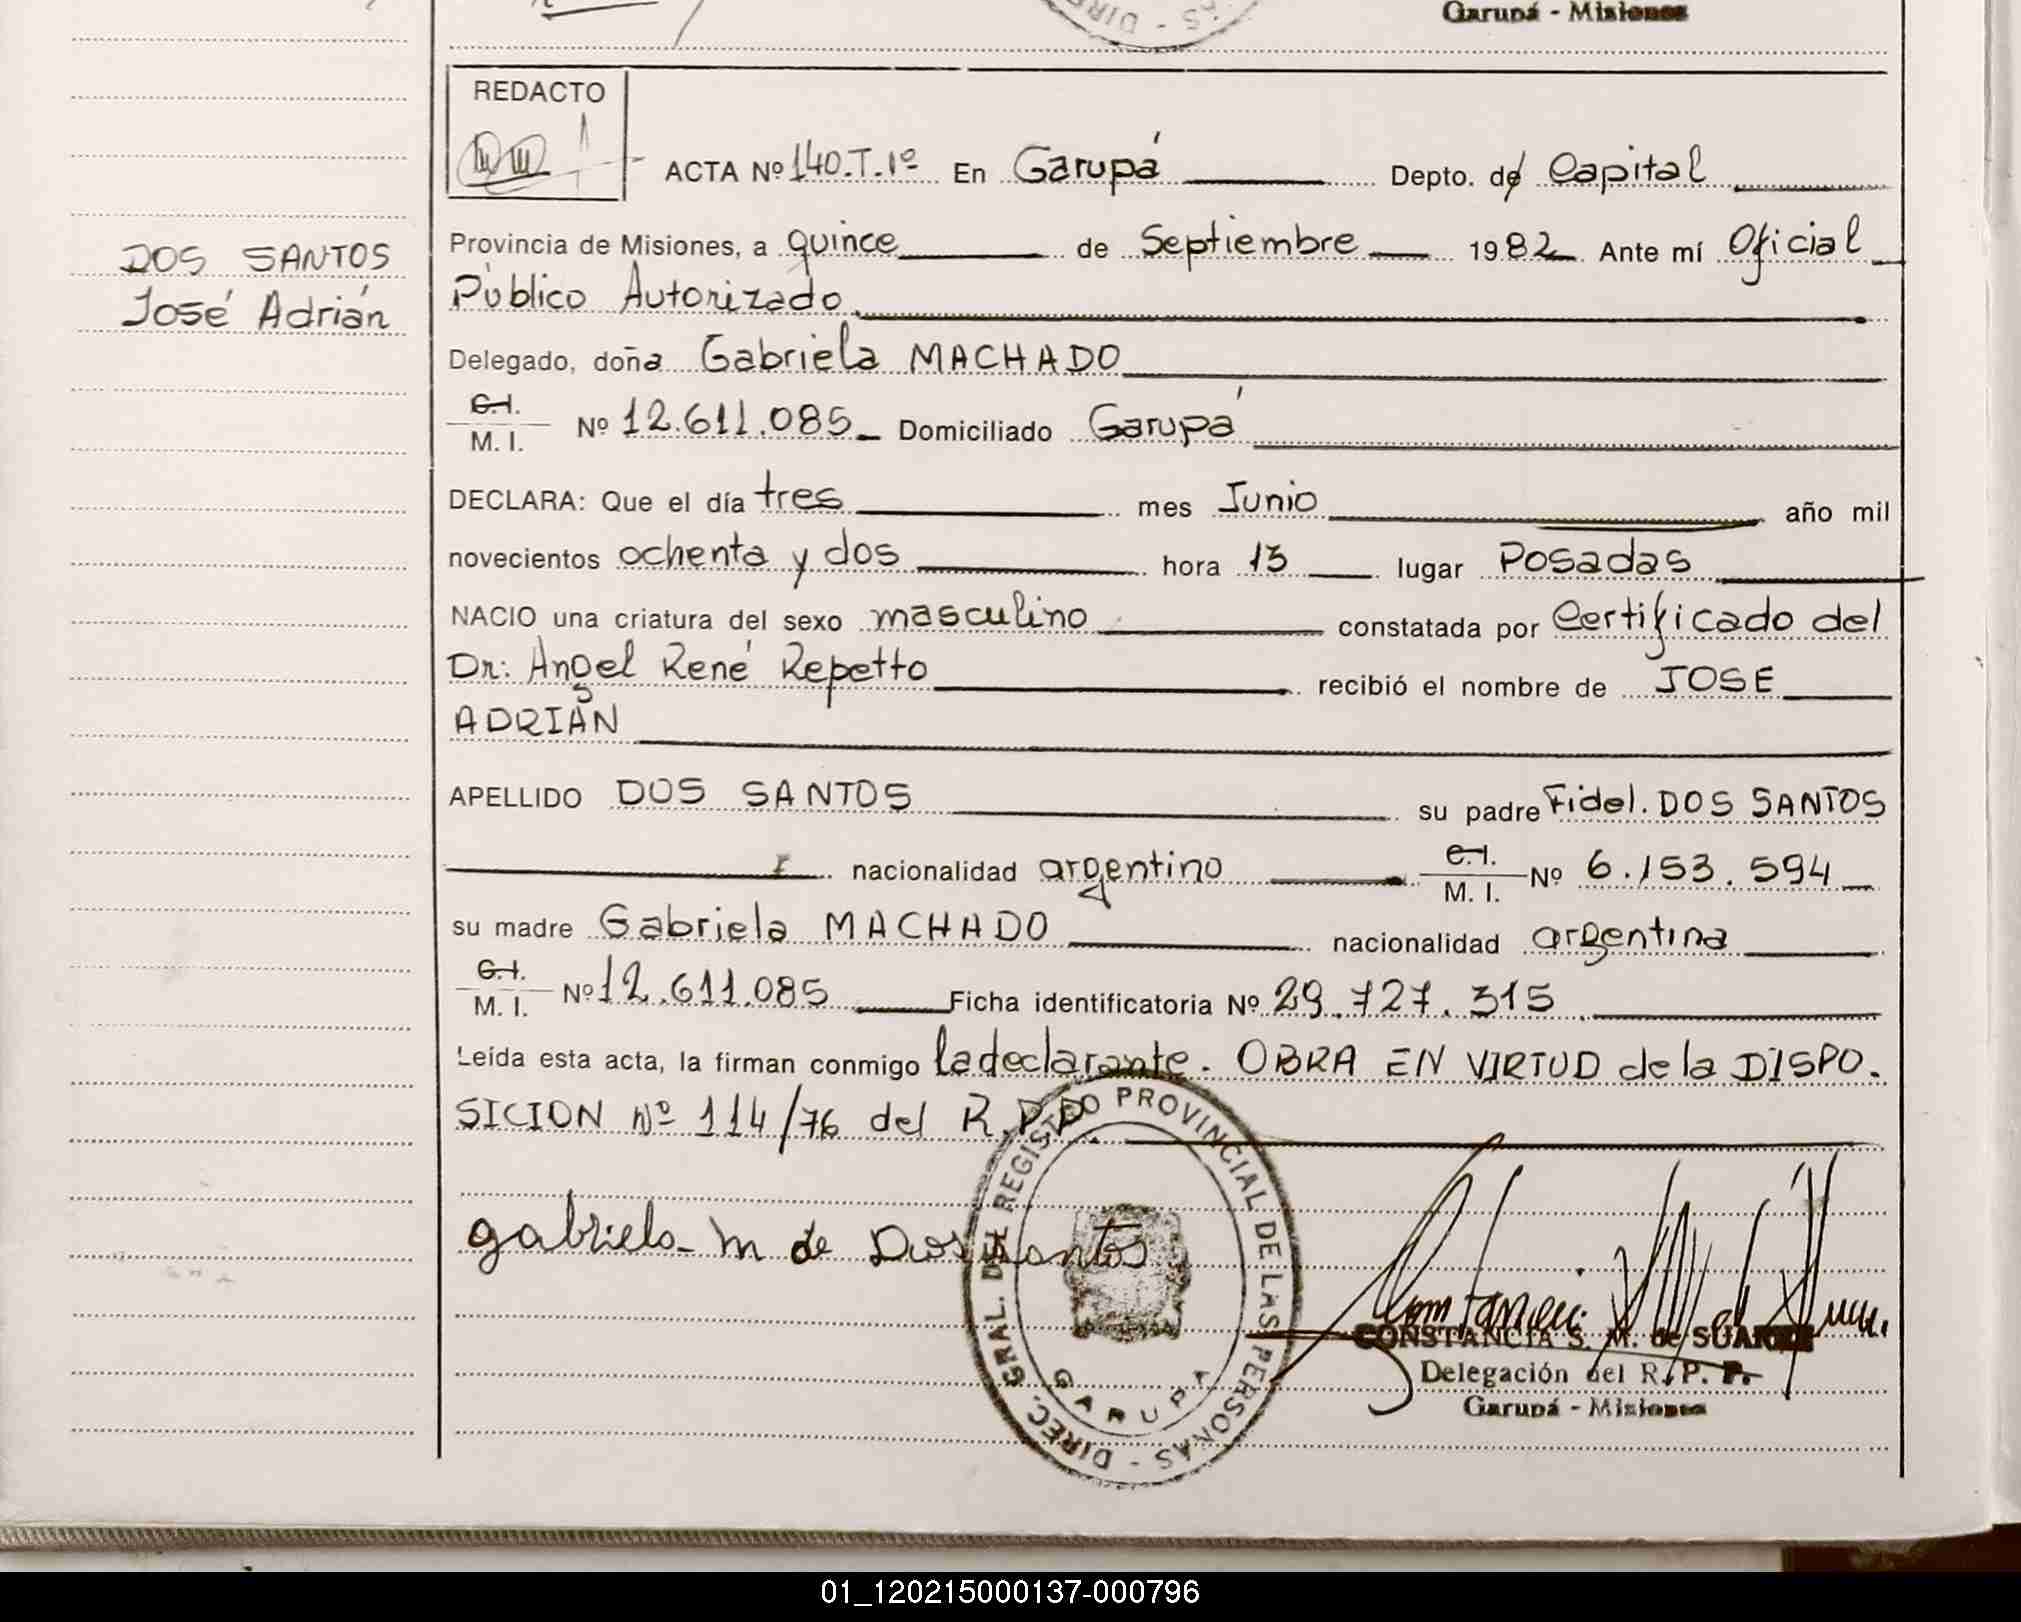 Garupá - Misiones
REDACTO
ACTA Nº 140.T.1º En Garupá Depto. de Capital
DOS SANTOS
José Adrián
Provincia de Misiones, a quince de Septiembre 1982 Ante mí Oficial
Público Autorizado.
Delegado, doña Gabriela MACHADO
C.I.
M. I. Nº 12.611.085 Domiciliado Garupá
DECLARA: Que el día tres mes Junio año mil
novecientos ochenta y dos hora 13 lugar Posadas
NACIO una criatura del sexo masculino constatada por Certificado del
Dr: Angel René Repetto recibió el nombre de JOSE
ADRIÁN
APELLIDO DOS SANTOS su padre Fidel. DOS SANTOS
nacionalidad argentino C.I. M. I. Nº 6.153.594
su madre Gabriela MACHADO nacionalidad argentina
C.I.
M. I. Nº 12.611.085 Ficha identificatoria Nº 29.727.315
Leída esta acta, la firman conmigo la declarante. OBRA EN VIRTUD de la DISPO.
SICION Nº 114/76 del R.P.P.
gabriela M de Dos Santos
DIREC. GRAL. DEL REGISTRO PROVINCIAL DE LAS PERSONAS -
GARUPA
CONSTANCIA S. M. de SUAREZ
Delegación del R. P. P.
Garupá - Misiones
01_120215000137-000796